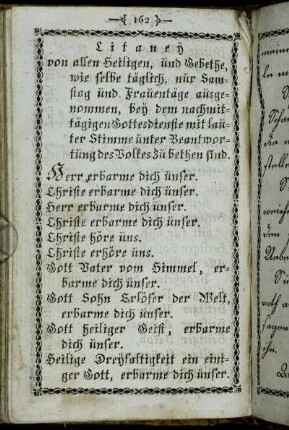 162
Litaney
von allen Heiligen, und Gebethe,
wie selbe täglich, nur Sam-
stag und Frauentäge ausge-
nommen, bey dem nachmit-
tägigen Gottesdienste mit lau-
ter Stimme unter Beantwor-
tung des Volkes zu bethen sind.
Herr erbarme dich unser.
Christe erbarme dich unser.
Herr erbarme dich unser.
Christe erbarme dich unser.
Christe höre uns.
Christe erhöre uns.
Gott Vater vom Himmel, er-
barme dich unser.
Gott Sohn Erlöser der Welt,
erbarme dich unser.
Gott heiliger Geist, erbarme
dich unser.
Heilige Dreyfaltigkeit ein eini-
ger Gott, erbarme dich unser.